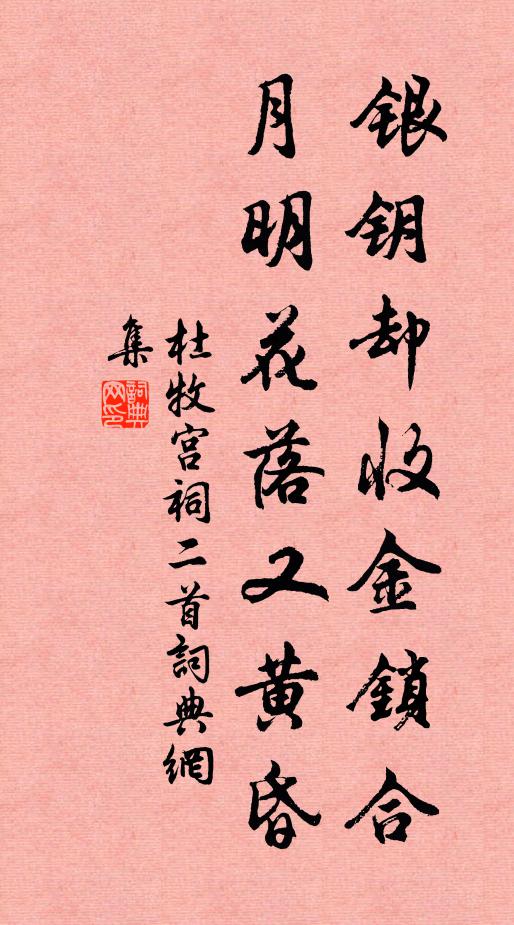 银钥却收金鎖合
月明花落又黄昏
杜牧宫祠二首詞典網
集
詞典
网印